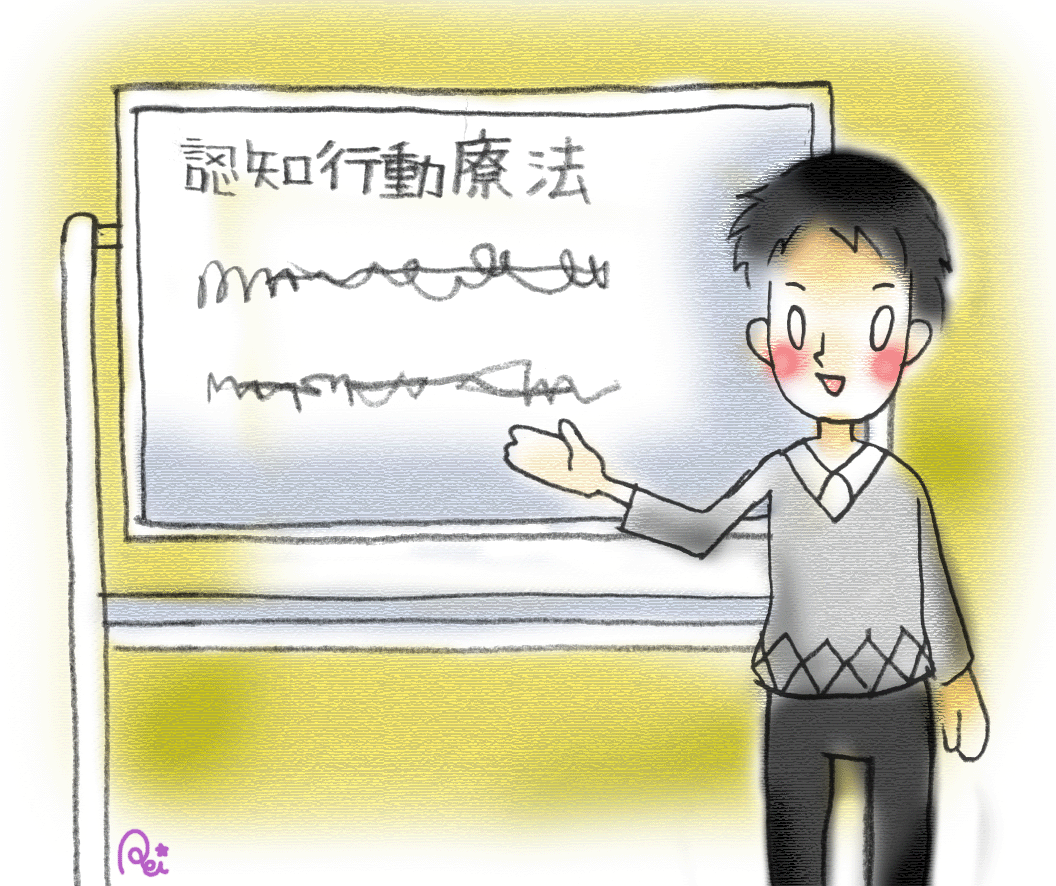 認知行動療法
Rei